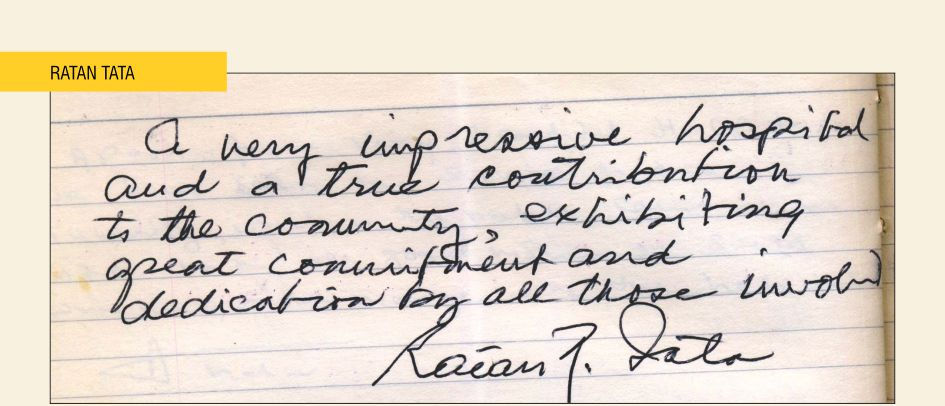 RATAN TATA
A very impressive hospital
and a true contribution
to the community, exhibiting
great commitment and
dedication by all those involved
Ratan N. Tata